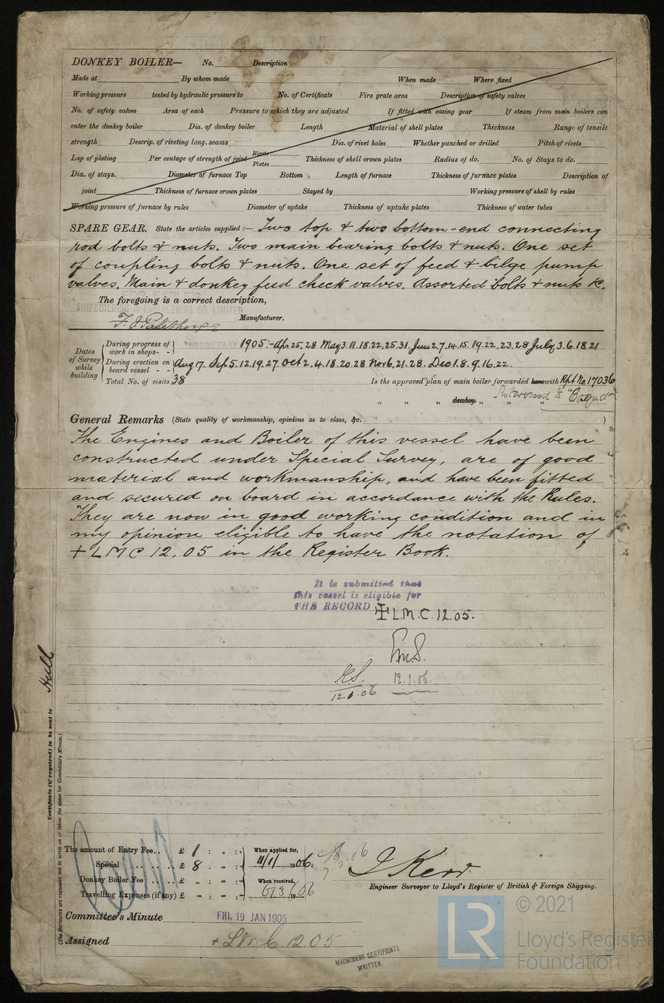 DONKEY BOILER— No. Description
Made at By whom made When made Where fixed
Working pressure tested by hydraulic pressure to No. of Certificate Fire grate area Description of safety valves
No. of safety valves Area of each Pressure to which they are adjusted If fitted with easing gear If steam from main boilers can
enter the donkey boiler Dia. of donkey boiler Length Material of shell plates Thickness Range of tensile
strength Descrip. of riveting long. seams Dia. of rivet holes Whether punched or drilled Pitch of rivets
Lap of plating Per centage of strength of joint Rivets Plates Thickness of shell crown plates Radius of do. No. of Stays to do.
Dia. of stays. Diameter of furnace Top Bottom Length of furnace Thickness of furnace plates Description of
joint Thickness of furnace crown plates Stayed by Working pressure of shell by rules
Working pressure of furnace by rules Diameter of uptake Thickness of uptake plates Thickness of water tubes
SPARE GEAR. State the articles supplied:— Two top & two bottom-end connecting
rod bolts & nuts. Two main bearing bolts & nuts. One set
of coupling bolts & nuts. One set of feed & bilge pump
valves. Main & donkey feed check valves. Assorted bolts & nuts &c.
The foregoing is a correct description,
Manufacturer.
Dates of Survey while building
During progress of work in shops - - 1905:- Apr. 25, 28 May 3. 11. 18. 22. 25. 31. June 2. 7. 14. 15. 19. 22. 23. 28 July 3. 6. 18. 21
During erection on board vessel - - Aug 17. Sep 5. 12. 19. 27. Oct 2. 4. 18. 20. 28 Nov 16. 21. 28. Dec 1. 8. 9. 16. 22.
Total No. of visits 38 Is the approved plan of main boiler forwarded here with Rpt. No 17036
" " " donkey " " "
General Remarks (State quality of workmanship, opinions as to class, &c.
The Engines and Boiler of this vessel have been
constructed under Special Survey, are of good
material and workmanship, and have been fitted
and secured on board in accordance with the Rules.
They are now in good working condition and in
my opinion eligible to have the notation of
+ LMC 12.05 in the Register Book.
It is submitted that
this vessel is eligible for
THE RECORD + L.M.C. 12.05.
12.1.06
12.1.06
Certificate (if required) to be sent to Hull
The amount of Entry Fee.. £ 1 : - : When applied for,
Special £ 8 : - : 11/1/06
Donkey Boiler Fee £ - : - : When received,
Travelling Expenses (if any) £ - : - : 6/3/06
J Kerr
Engineer Surveyor to Lloyd's Register of British & Foreign Shipping.
Committee's Minute FRI. 19 JAN 1906
Assigned + LMC 12 05
MACHINERY CERTIFICATE
WRITTEN.
LR
© 2021
Lloyd's Register
Foundation